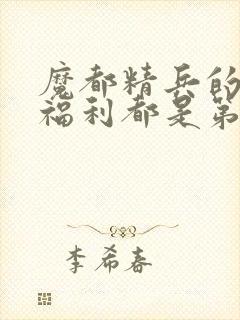 魔都精兵的
福利都是第
李希春